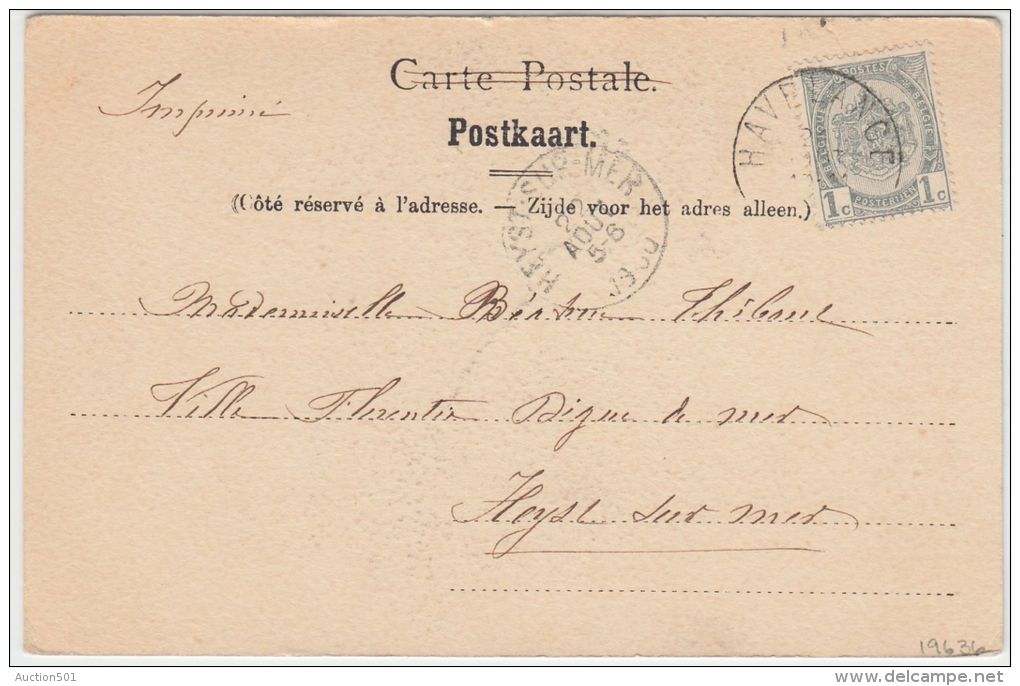 Carte Postale.
Imprimé
Postkaart.
(Côté réservé à l'adresse. — Zijde voor het adres alleen.)
HAVELANGE
POSTES
BELGIQUE BELGIE
1c 1c
POSTERIJEN
HEYST-SUR-MER
25
AOUT
5-6
1900
Mademoiselle Thibaut
Villa Digue de mer
Heyst sur mer
19636
Auction501
www.delcampe.net